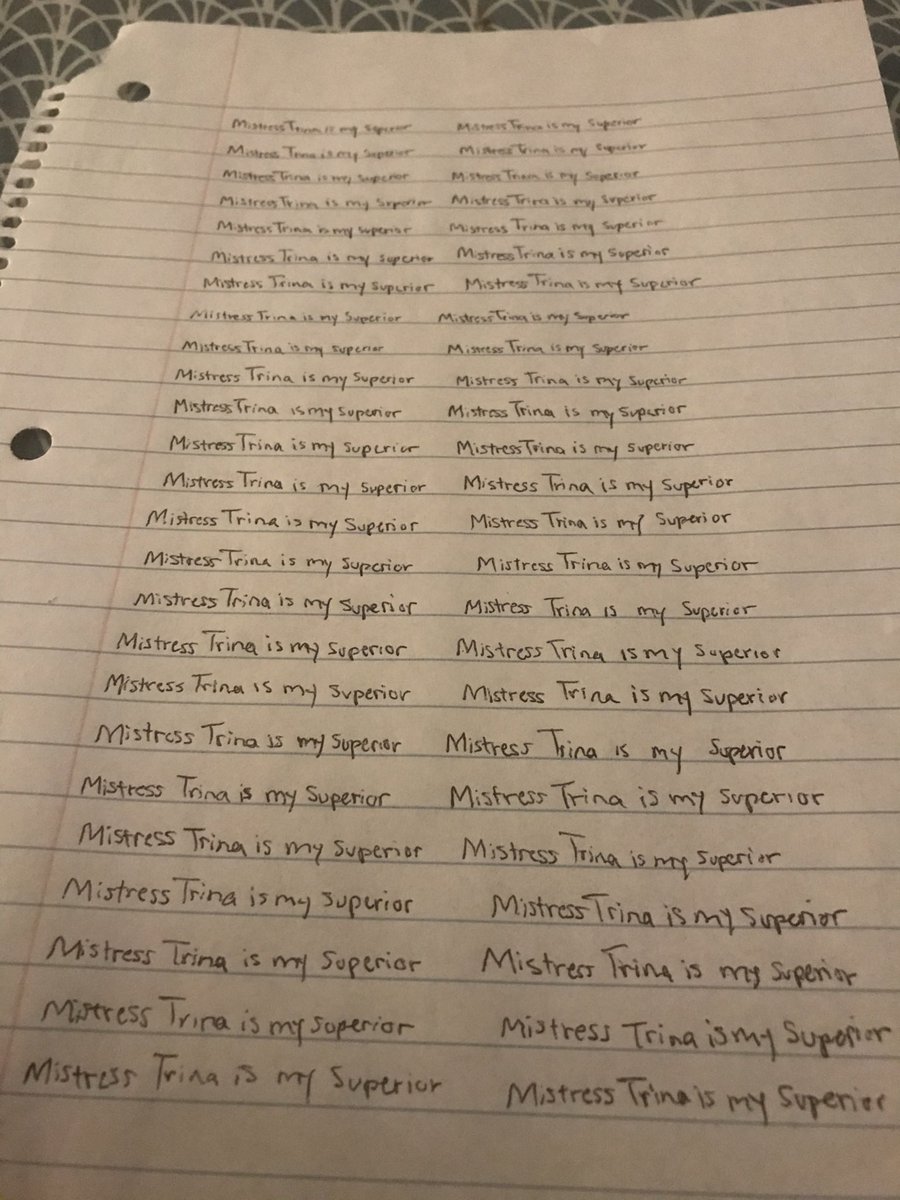 Mistress Trina is my Superior Mistress Trina is my Superior
Mistress Trina is my Superior Mistress Trina is my Superior
Mistress Trina is my Superior Mistress Trina is my Superior
Mistress Trina is my Superior Mistress Trina is my Superior
Mistress Trina is my Superior Mistress Trina is my Superior
Mistress Trina is my Superior Mistress Trina is my Superior
Mistress Trina is my Superior Mistress Trina is my Superior
Mistress Trina is my Superior Mistress Trina is my Superior
Mistress Trina is my Superior Mistress Trina is my Superior
Mistress Trina is my Superior Mistress Trina is my Superior
Mistress Trina is my Superior Mistress Trina is my Superior
Mistress Trina is my Superior Mistress Trina is my Superior
Mistress Trina is my Superior Mistress Trina is my Superior
Mistress Trina is my Superior Mistress Trina is my Superior
Mistress Trina is my Superior Mistress Trina is my Superior
Mistress Trina is my Superior Mistress Trina is my Superior
Mistress Trina is my Superior Mistress Trina is my Superior
Mistress Trina is my Superior Mistress Trina is my Superior
Mistress Trina is my Superior Mistress Trina is my Superior
Mistress Trina is my Superior Mistress Trina is my Superior
Mistress Trina is my Superior Mistress Trina is my Superior
Mistress Trina is my Superior Mistress Trina is my Superior
Mistress Trina is my Superior Mistress Trina is my Superior
Mistress Trina is my Superior Mistress Trina is my Superior
Mistress Trina is my Superior Mistress Trina is my Superior